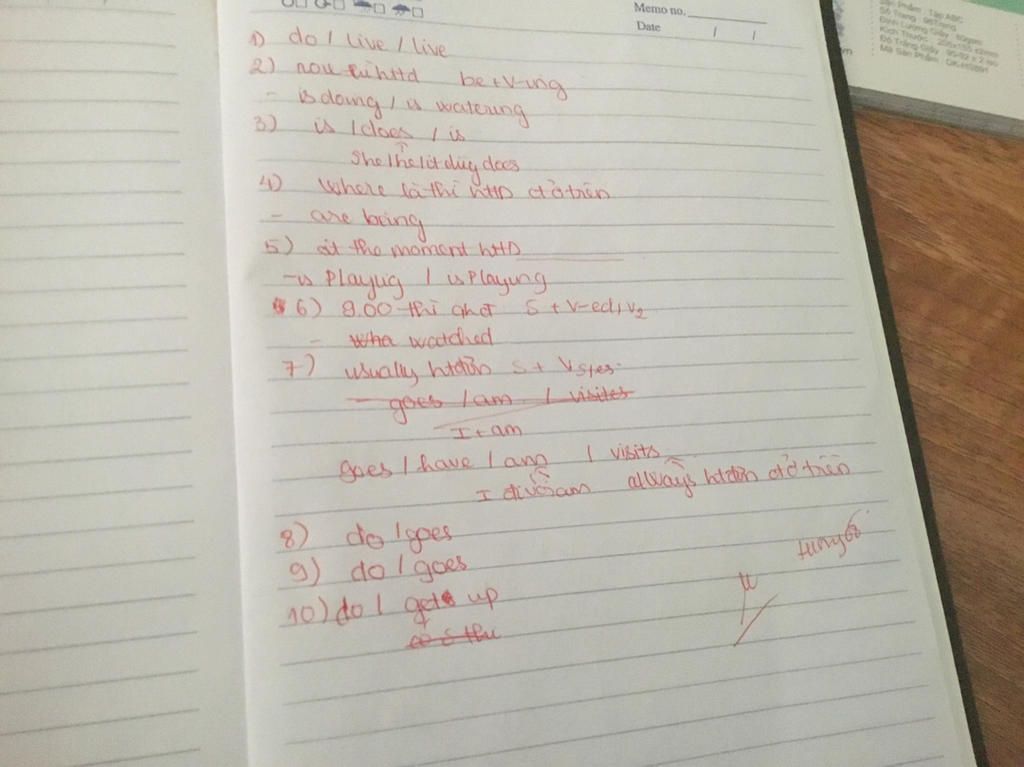 Memo no.
Date / /
Sản Phẩm : Tập ABC
Số Trang : 96Trang
Định Lượng Giấy : 60gsm
1) do / live / live
2) now thì httd be + V-ing
- is doing / is watering
3) is / does / is
she/he/it dùng does
4) Where là thì httD ct ở trên
- are being
5) at the moment httD
- is playing / is playing
6) 9.00 thì qkđ S + V-ed, V2
- watched
7) usually htđơn S + Vs/es.
goes / am / visites
I + am
goes / have / am / visits
I đi với am always htđơn ct ở trên
8) do / goes
9) do / goes
10) do / gets up